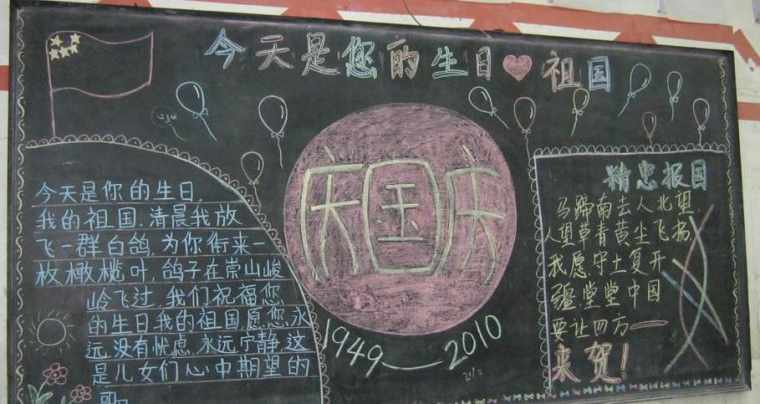 今天是您的生日 祖国
今天是你的生日,
我的祖国,清晨我放
飞一群白鸽,为你衔来一
枚橄榄叶,鸽子在崇山峻
岭飞过,我们祝福您
的生日我的祖国愿您永
远没有忧虑,永远宁静,这
是儿女们心中期望的
歌。
庆国庆
1949—2010
精忠报国
马蹄南去人北望
人望草青黄尘飞扬
我愿守土复开
疆堂堂中国
要让四方——
来贺!